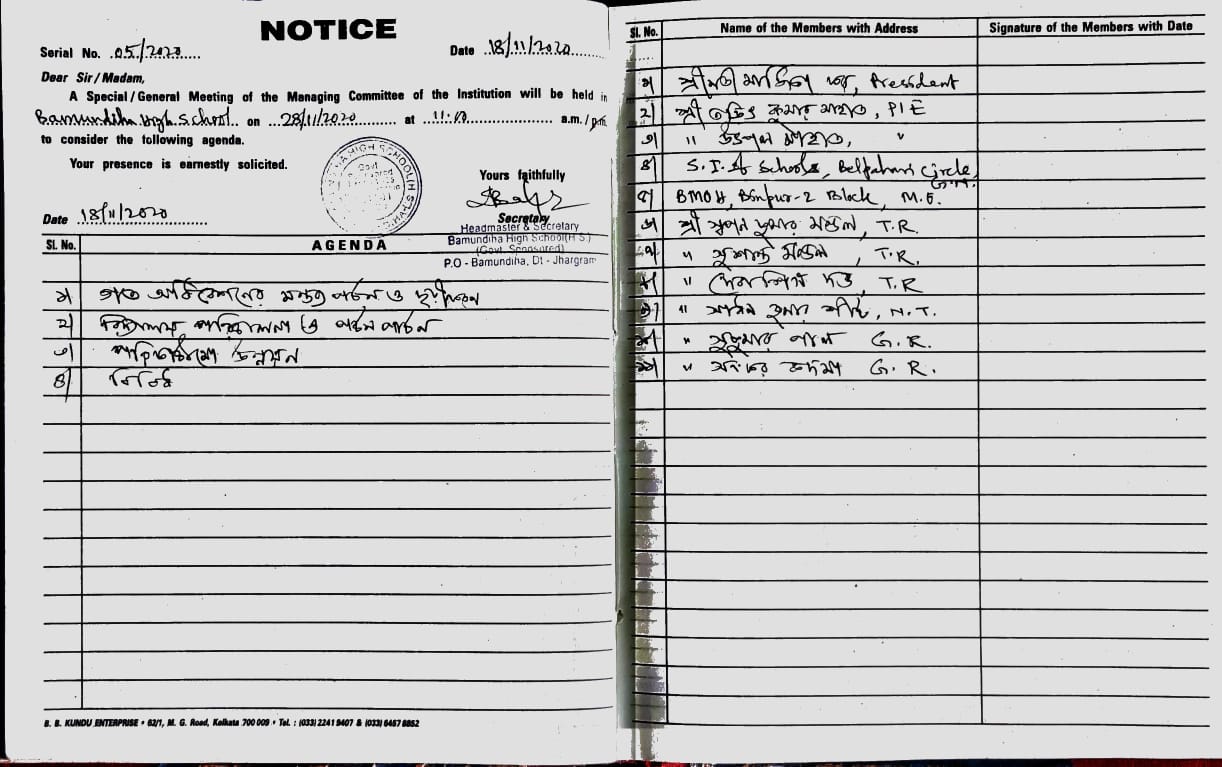 NOTICE
Serial No. 05/2020
Date 18/11/2020
Dear Sir/Madam,
A Special/General Meeting of the Managing Committee of the Institution will be held in
Bamundiha High School on 28/11/2020 at 11:10 a.m./p.m.
to consider the following agenda.
Your presence is earnestly solicited.
Yours faithfully
Date 18/11/2020
Secretary
Headmaster & Secretary
Bamundiha High School(H.S.)
(Govt. Sponsored)
P.O - Bamundiha, Dt - Jhargram
Sl. No. AGENDA
১) গত অধিবেশনের মন্তব্য পঠন ও দৃঢ়ীকরণ
২) বিদ্যালয় পরিচালনা ও পঠন পাঠন
৩) পরিকাঠামো উন্নয়ন
৪) বিবিধ
B. B. KUNDU ENTERPRISE • 62/1, M. G. Road, Kolkata 700 009 • Tel. : (033) 2241 9407 & (033) 6457 8852
Sl. No. Name of the Members with Address Signature of the Members with Date
১) শ্রীমতী President
২) শ্রী কুমার মাহাত, PIE
৩) " উৎপল মাহাত, "
৪) S.I. of Schools, Belpahari Circle,
৫) BMOH, Binpur-2 Block, M.E.
৬) শ্রী স্বপন কুমার মণ্ডল, T.R.
৭) " সুশান্ত মণ্ডল, T.R.
৮) " দেবাশিস দত্ত, T.R
৯) " কুমার N.T.
১০) " সুকুমার পাল G.R.
১১) " G.R.